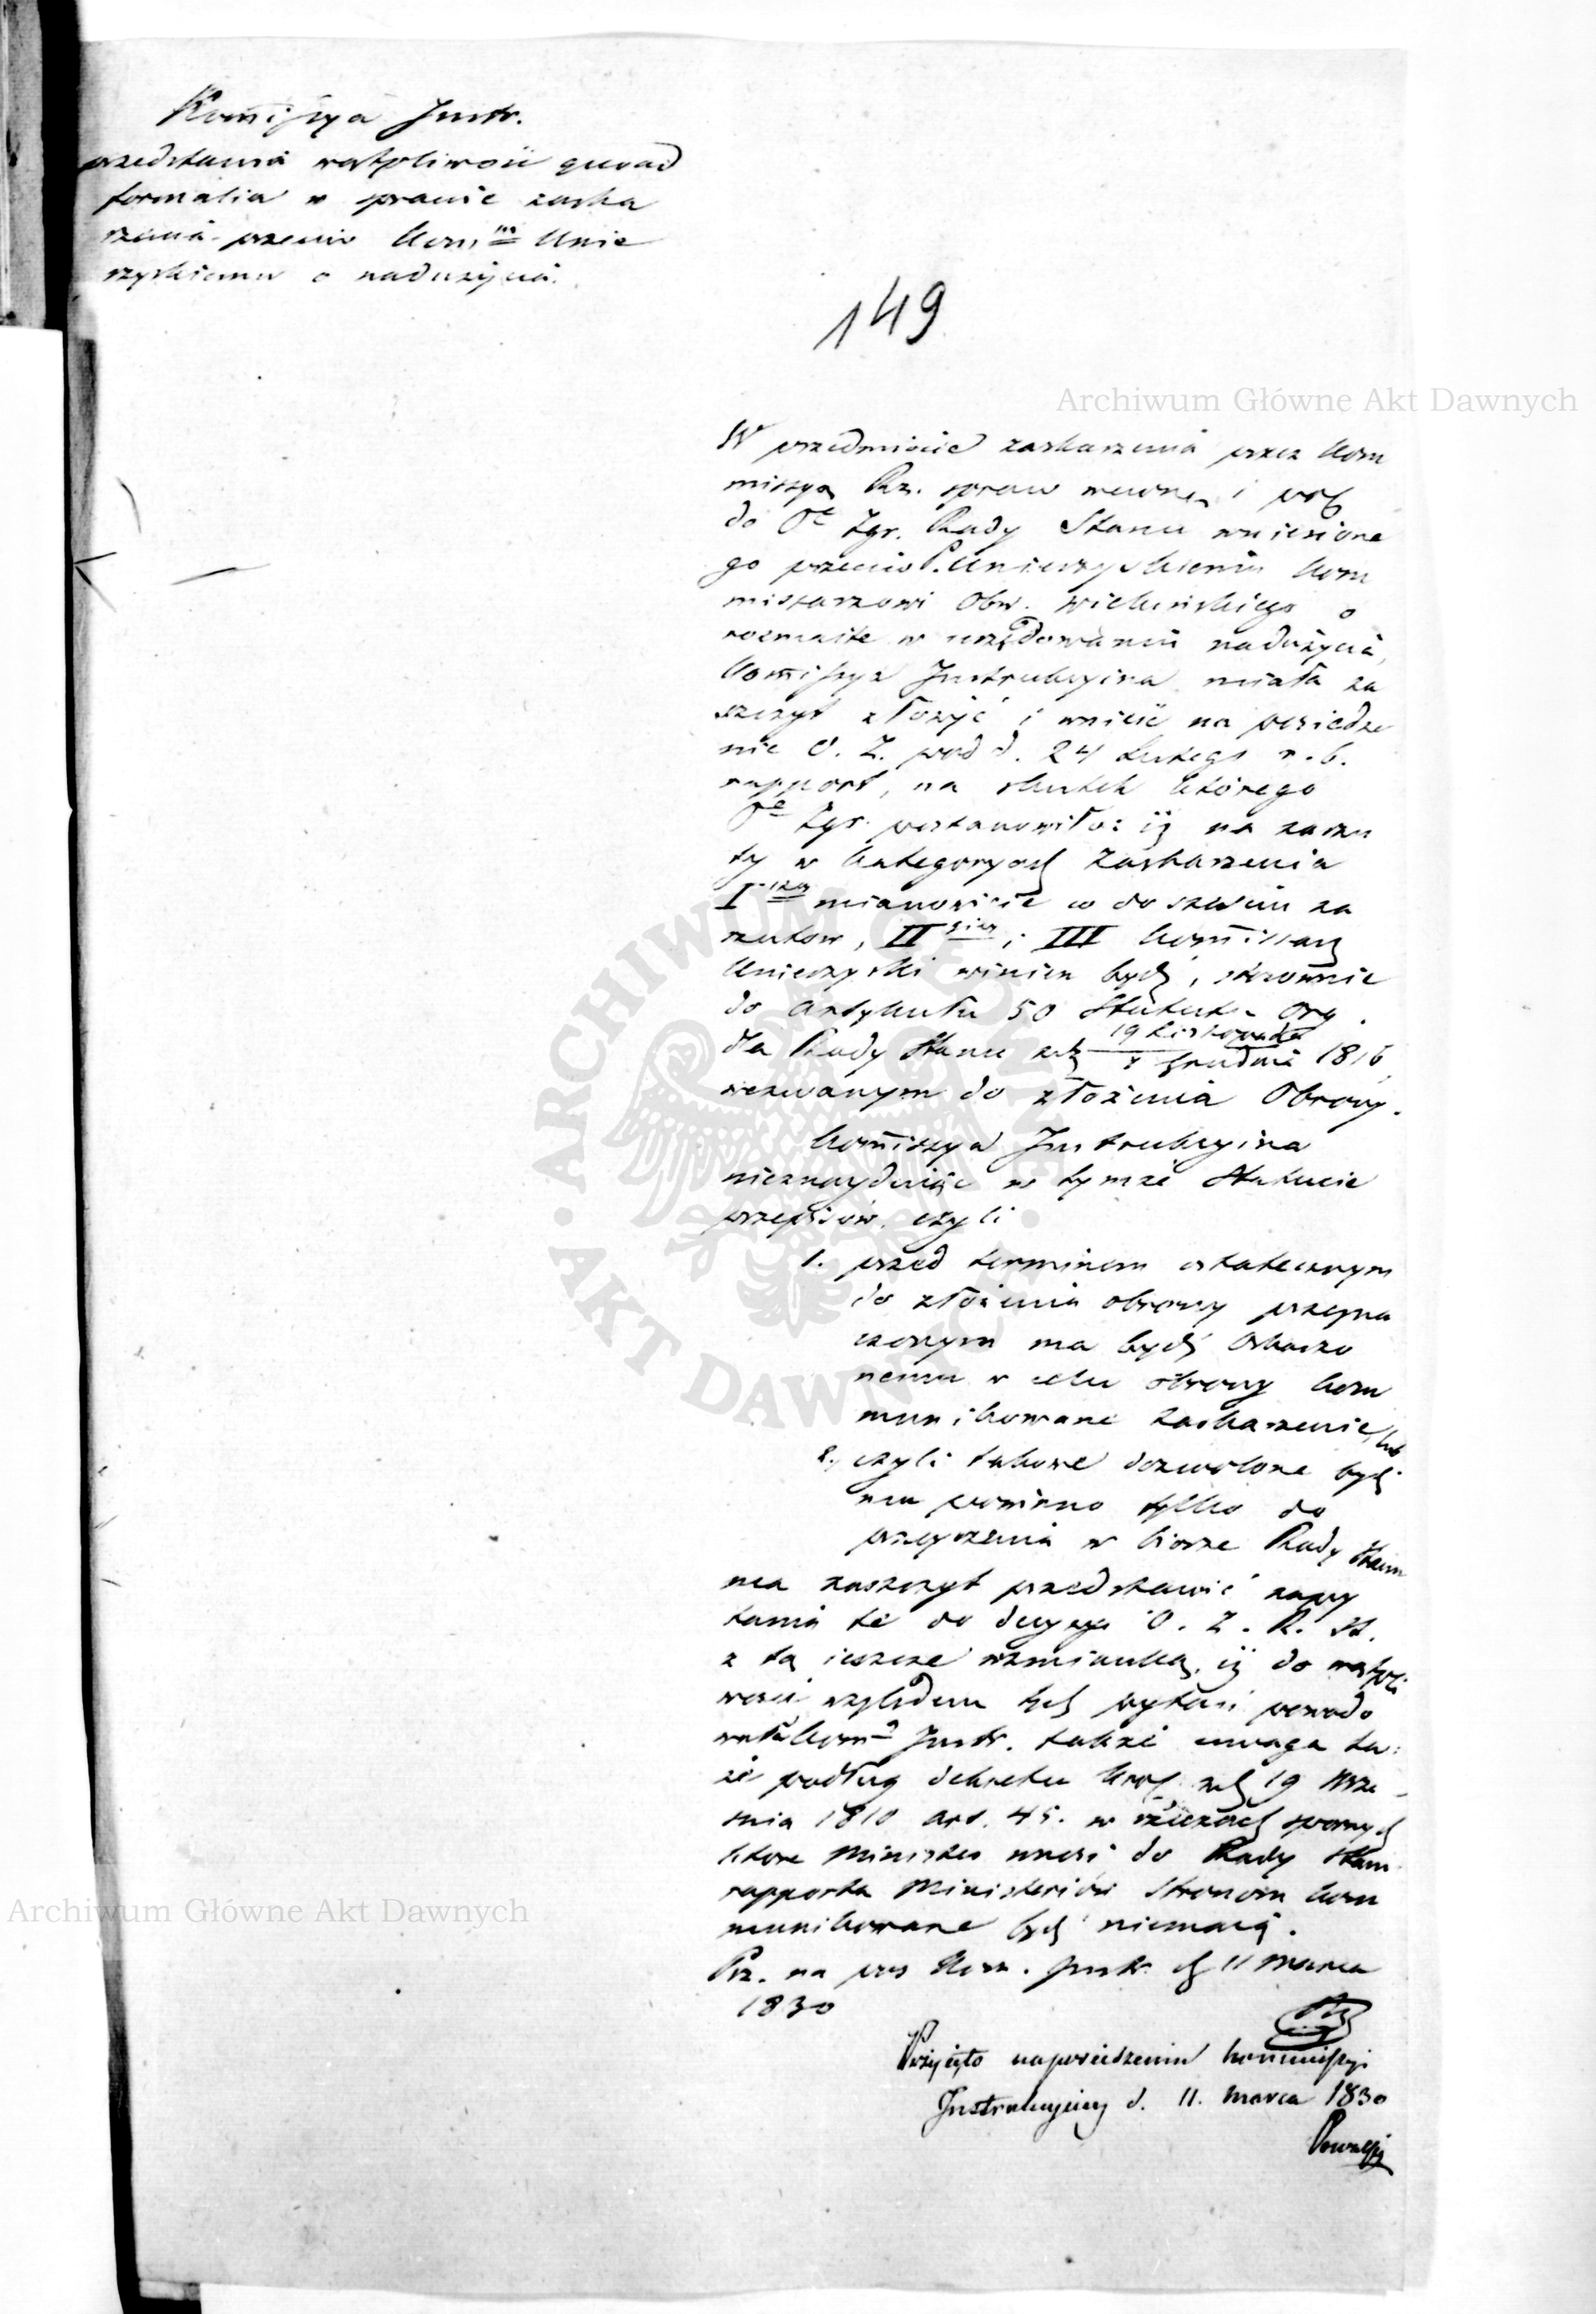 Kommissya Instr.
przedstawia wątpliwość quoad
formalia w sprawie zaska
rżenia przeciw Komm. Unie
rzyskiemu o nadużycia.
149
Archiwum Główne Akt Dawnych
W przedmiocie zaskarzenia przez Kom
missyą Rz. spraw wewnę. i pol.
do O. Zgr. Rady Stanu wniesione
go przeciw P. Unierzyskiemu Kom
missarzowi Obw. Wieluńskiego o
rozmaite w urzędowaniu nadużycia,
Kommissya Instrukcyina miała za
szczyt złożyć i wnieść na posiedze
nie O. Z. pod d. 24 Lutego r. b.
rapport, na skutek którego
O. Zgr. postanowiło: iż na zarzu
ty w kategoryach Zaskarzenia
I mianowicie co do sześciu za
rzutów, II i III Kommissarz
Unierzyski winien bydź, stosownie
do Artykułu 50 Statutu Org.
dla Rady Stanu z d. 19 Listopada
1 Grudnia 1816
wezwanym do złożenia Obrony.
Kommissya Instrukcyina
nieznayduiąc w tymże Statucie
przepisów, czyli
1. przed terminem ostatecznym
do złożenia obrony przezna
czonym ma bydź Oskarżo
nemu w celu obrony kom
munikowane Zaskarzenie, lub
2. czyli takowe dozwolone bydź
mu powinno tylko do
przeyrzenia w biórze Rady Stanu
ma zaszczyt przedstawić zapy
tania te do decyzyi O. Z. R. St.
z tą ieszcze wzmianką, iż do wątpli
wości względem tych pytań powodo
wała Komm. Instr. także uwaga ta:
że podług dekretu Król. z d. 19 Wrze
śnia 1810 art. 45. w rzeczach spornych
które Minister wnosi do Rady Stanu
rapporta Ministeriów Stronom kom
munikowane bydź niemaią.
Archiwum Główne Akt Dawnych
Prz. na pos. Kom. Instr. d. 11 Marca
1830
Przyięto na posiedzeniu kommissyi
Instrukcyiney d. 11. Marca 1830
ARCHIWUM GŁÓWNE AKT DAWNYCH